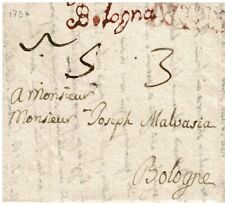 1753
Bologna
5 3
A Monsieur
Monsieur Joseph Malvasia
Bologne